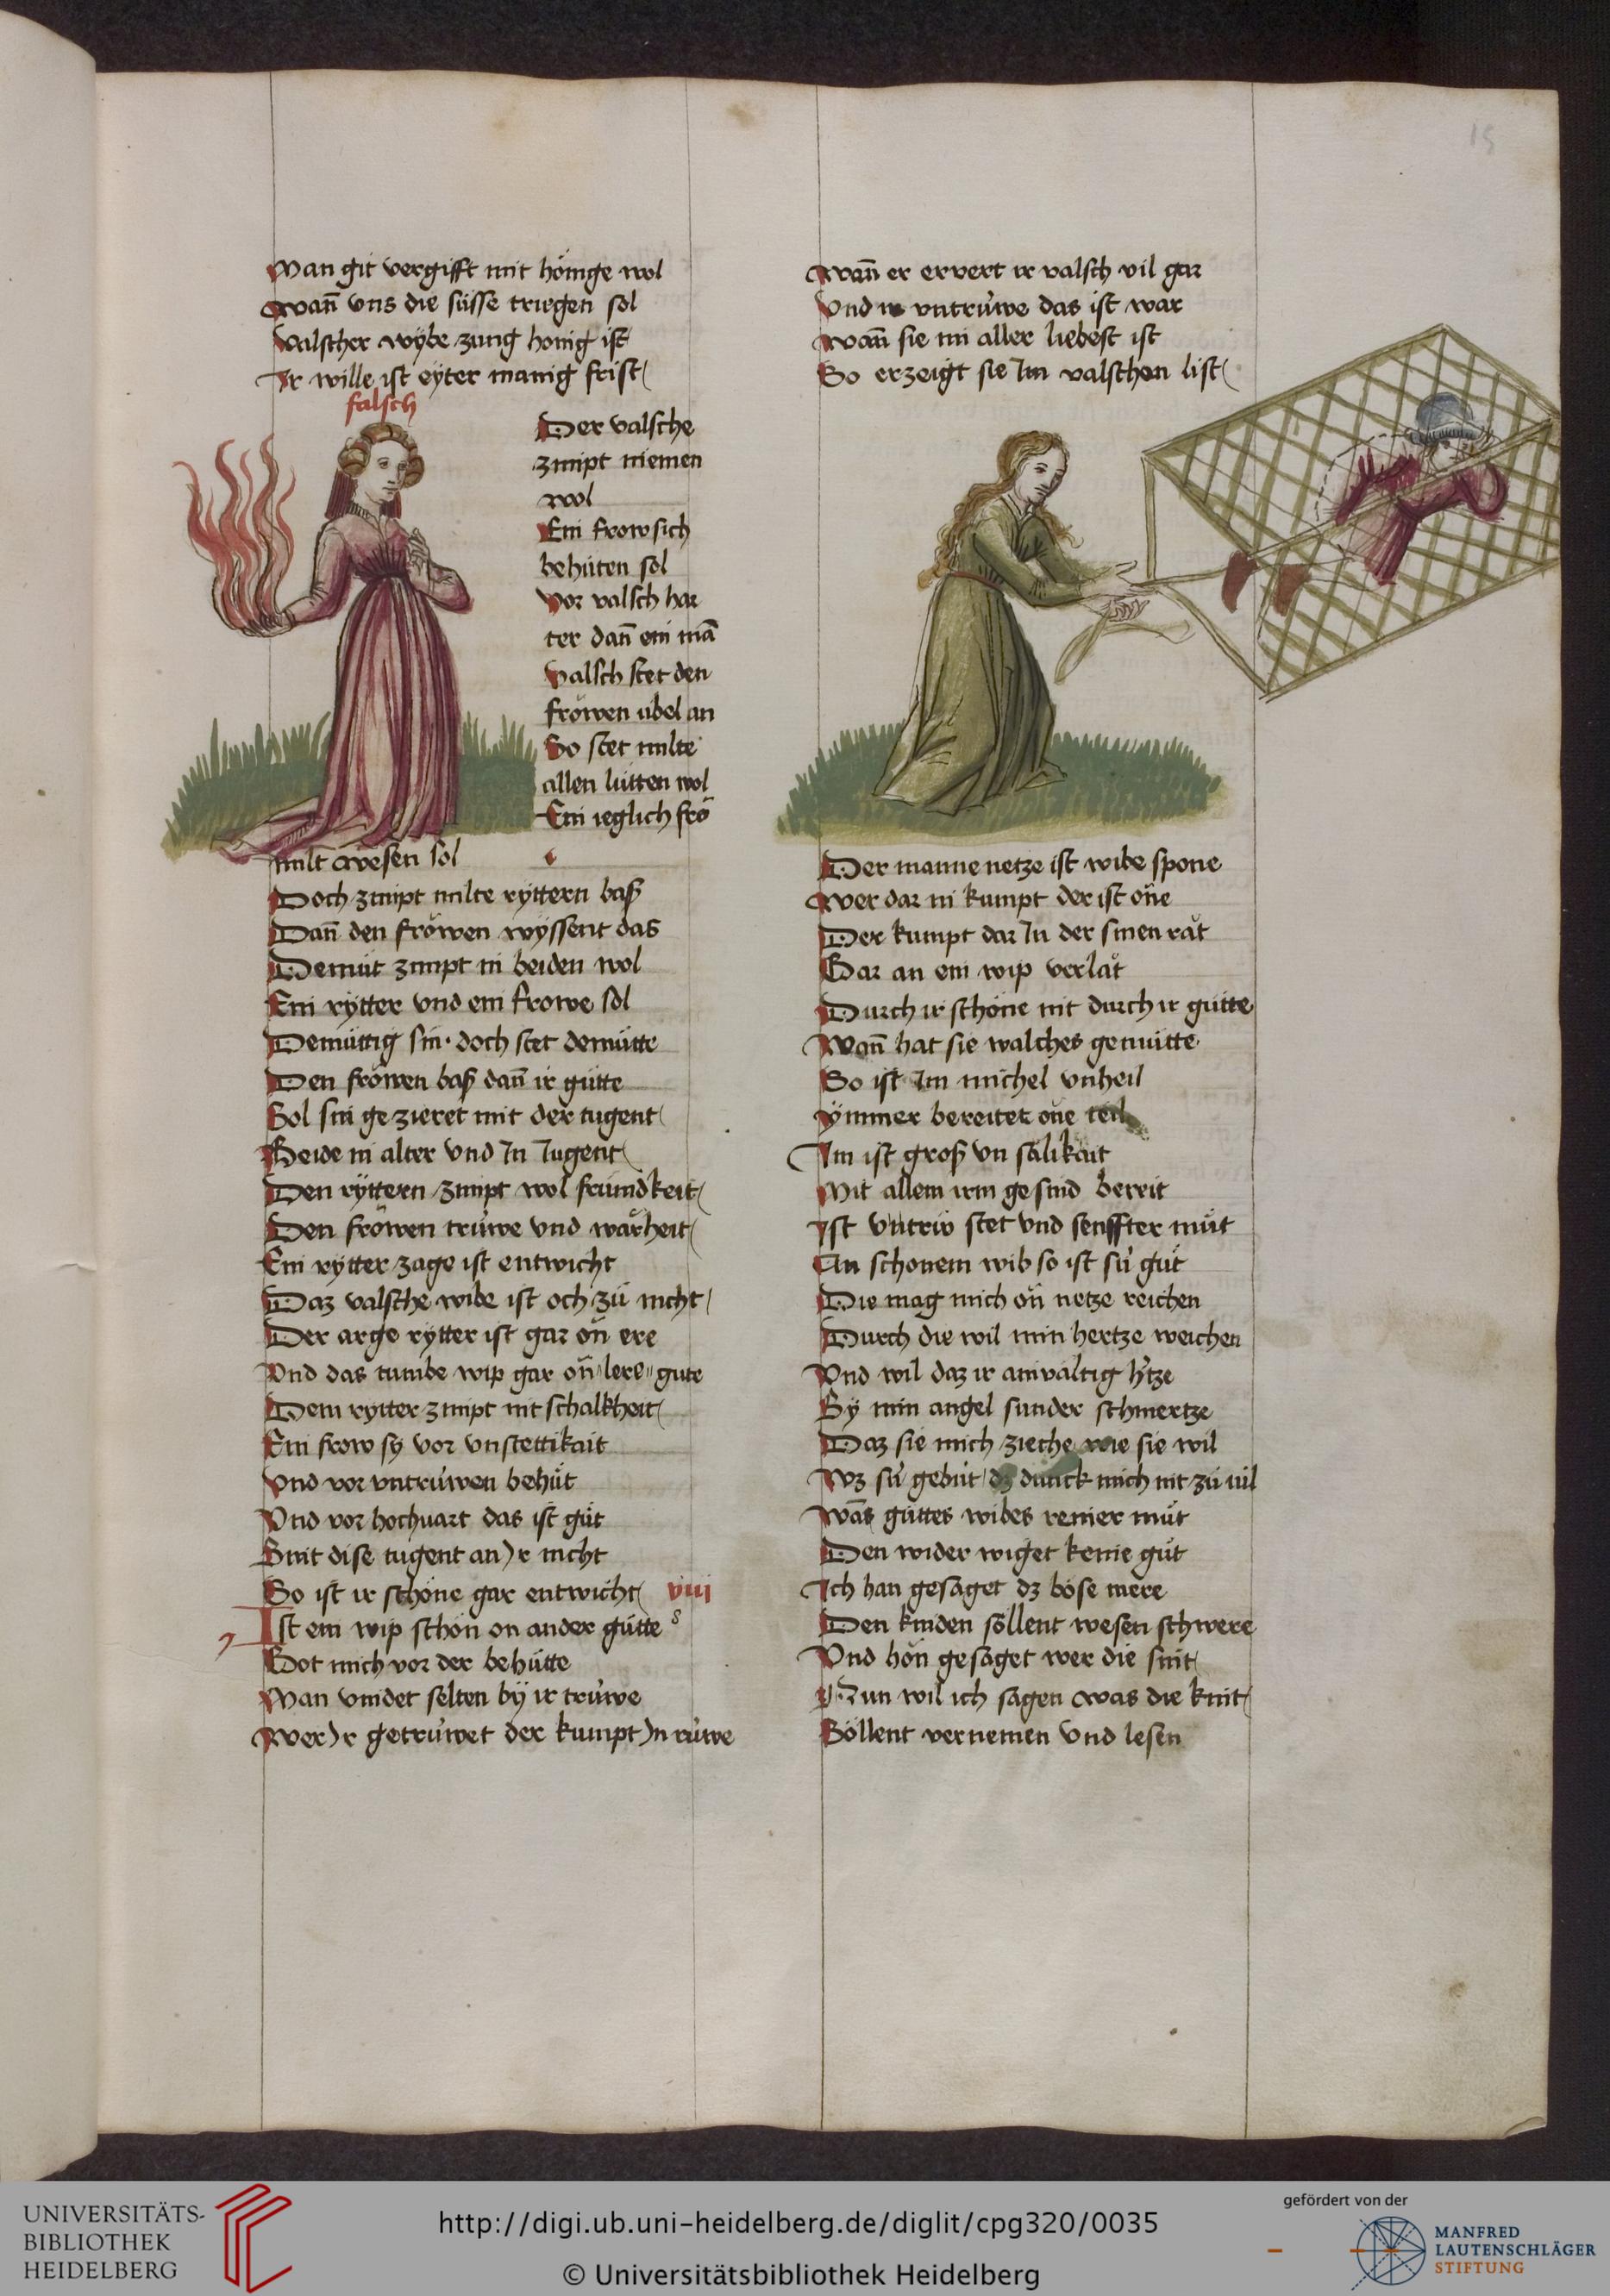 15
Man git vergifft mit hönige wol
Wann̄ vns die süsse triegen sol
Valscher wybe zung honig ist
Ir wille ist eyter manig frist
falsch
Der valsche
zimpt niemen
wol
Ein frow sich
behüten sol
Vor valsch har
ter dan̄ ein mā
Valsch stet den
fröwen übel an
So stet milte
allen lütten wol
Ein ieglich frō
milt wesen sol
Doch zimpt milte ryttern baß
Dan̄ den fröwen wyssent das
Demüt zimpt in beiden wol
Ein rytter vnd ein frowe sol
Demüttig sin doch stet demütte
Den fröwen baß dan̄ ir gütte
Sol sin gezieret mit der tugent
Beide in alter vnd In Iugent
Den ryttern zimpt wol fründkeit
Den fröwen trüwe vnd warheit
Ein rytter zage ist entwicht
Daz valsche wibe ist och zü nicht
Der arge rytter ist gar on̄ ere
Vnd das tumbe wip gar on̄ lere gute
Dem rytter zimpt nit schalkheit
Ein frow sy vor vnstettikait
Vnd vor vntrüwen behüt
Vnd vor hochuart das ist güt
Sint dise tugent an Ir nicht
So ist ir schöne gar entwicht viii
Ist ein wip schön on ander gütte
Got mich vor der behütte
Man vindet selten by ir trüwe
Wer Ir getrüwet der kumpt In rüwe
Wan̄ er ervert ir valsch vil gar
Vnd ir vntrüwe das ist war
Wan̄ sie im aller liebest ist
So erzeigt sie Im valschen list
Der manne netze ist wibe spone
Wer dar in kumpt der ist one
Der kumpt dar In der sinen rat
Gar an ein wip verlat
Durch ir schöne nit durch ir gütte
Wan̄ hat sie walches gemütte
So ist Im michel vnheil
ymmer bereitet one teil
Im ist groß vn sälikait
Mit allem irm gesind bereit
Ist vntrüw stet vnd senffter müt
An schonem wib so ist sü güt
Die mag mich on netze reichen
Durch die wil min hertze weichen
Vnd wil daz ir ainvältig h'tze
Sy min angel sunder schmertze
Daz sie mich zieche wie sie wil
Wz sü gebüt dz dunck mich nit zü uil
Wan̄ güttes wibes reiner müt
Den wider wiget keine güt
Ich han gesaget dz böse mere
Den kinden söllent wesen schwere
Vnd hön gesaget wer die sint
Nun wil ich sagen was die kint
Söllent vernemen vnd lesen
UNIVERSITÄTS-
BIBLIOTHEK
HEIDELBERG
http://digi.ub.uni-heidelberg.de/diglit/cpg320/0035
© Universitätsbibliothek Heidelberg
gefördert von der
MANFRED
LAUTENSCHLÄGER
STIFTUNG